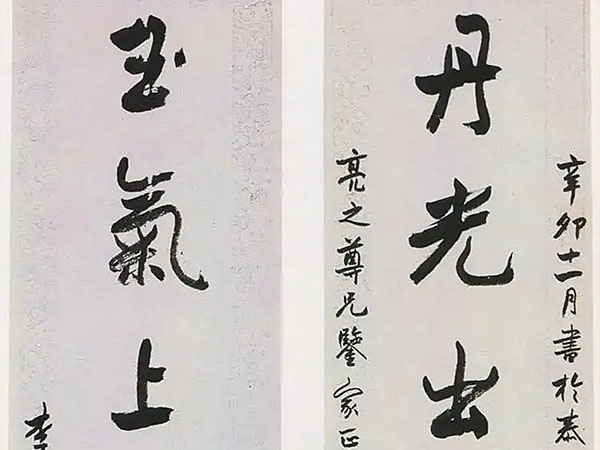 辛卯十一月書於泰
丹光出
亮之尊兄鑒家正
玉氣上
李